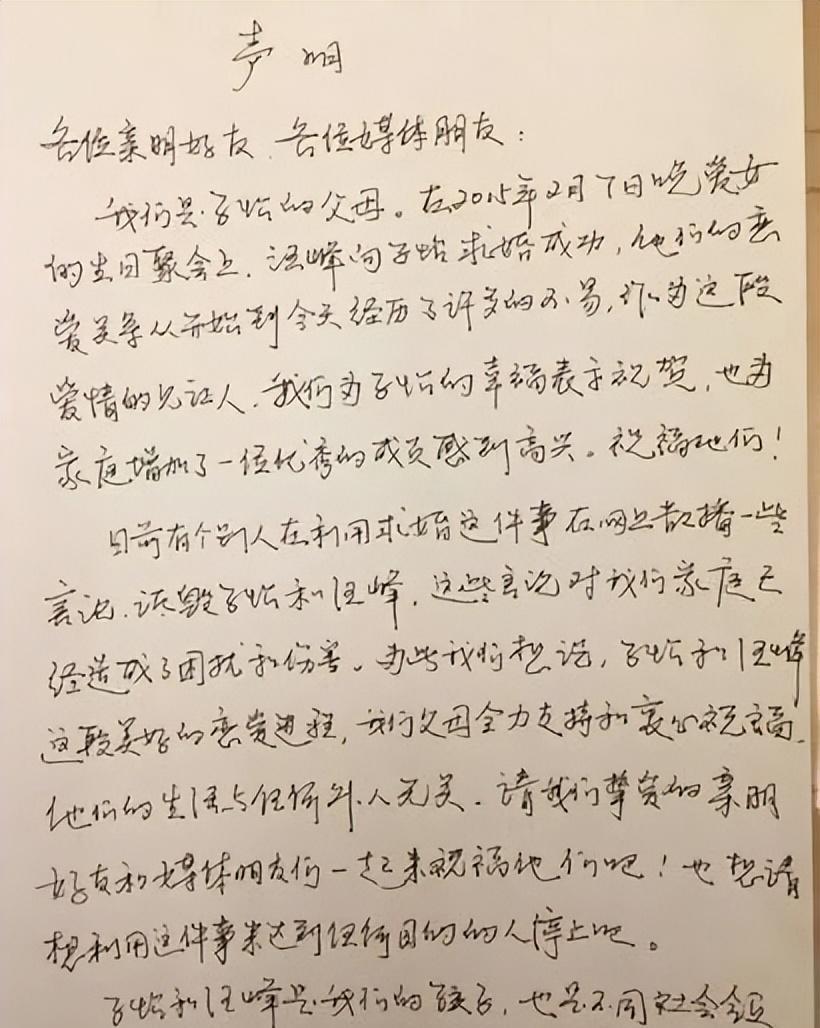 声明
各位亲朋好友、各位媒体朋友：
我们是子怡的父母。在2015年2月7日晚爱女
的生日聚会上，汪峰向子怡求婚成功，他们的恋
爱关系从开始到今天经历了许多的不易，作为这段
爱情的见证人，我们为子怡的幸福表示祝贺，也为
家庭增加了一位优秀的成员感到高兴。祝福他们！
目前有个别人在利用求婚这件事在网上散播一些
言论，诋毁子怡和汪峰，这些言论对我们家庭已
经造成了困扰和伤害。为此我们想说，子怡和汪峰
这段美好的恋爱进程，我们父母全力支持和衷心祝福，
他们的生活与任何外人无关。请我们挚爱的亲朋
好友和媒体朋友们一起来祝福他们吧！也想请
想利用这件事来达到任何目的的人停止吧。
子怡和汪峰是我们的孩子，也是不同社会